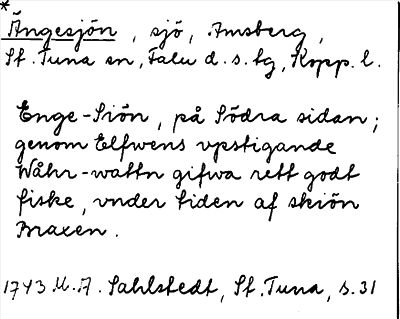 *
Ängesjön, sjö, Amsberg,
St. Tuna sn, Falu d.s. tg, Kopp. l.
Enge-Siön, på Södra sidan;
genom Elfwens vpstigande
Wåhr-wattn gifwa rett godt
fiske, vnder tiden af skiön
Braxen.
1743 M.A. Sahlstedt, St. Tuna, s. 31